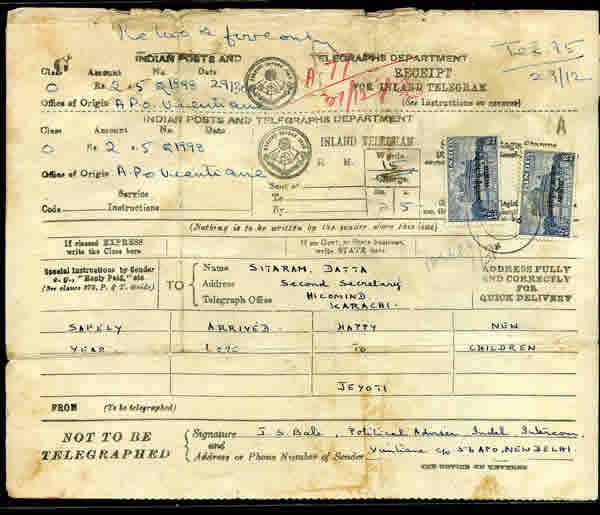 INDIAN POSTS AND TELEGRAPHS DEPARTMENT
Class Amount No. Date RECEIPT
O Rs. 2 5 FOR INLAND TELEGRAM
Office of Origin A.P.O. Vientiane (See Instructions on reverse)
A 77
INDIAN POSTS AND TELEGRAPHS DEPARTMENT
Class Amount No. Date INLAND TELEGRAM A
O Rs. 2 5
Office of Origin A P.O Vientiane
H. M. Words
15
Charge.
Rs.
2 5
Sent at
To
By
Service
Code Instructions
(Nothing is to be written by the sender above this line)
If classed EXPRESS write the Class here
If on Govt. or State business, write STATE here
Special Instructions by Sender
e. g., "Reply Paid," etc.
TO
Name SITARAM, DATTA
Address Second Secretary
Telegraph Office HICOMIND
KARACHI.
ADDRESS FULLY
AND CORRECTLY
FOR
QUICK DELIVERY
SAFELY ARRIVED HAPPY NEW
YEAR LOVE TO CHILDREN
JEYOTI
FROM (To be telegraphed)
NOT TO BE
TELEGRAPHED
Signature J. S. Bale, Political Adviser Indel Intercom
and
Address or Phone Number of Sender Vientiane c/o 56 APO, NEW DELHI.